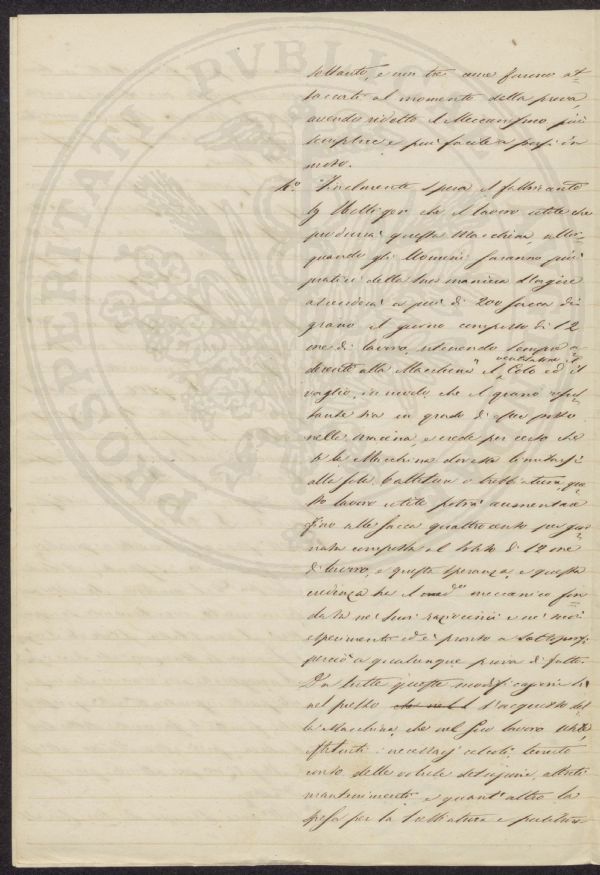 soltanto, e non tre come furono at=
taccati al momento della prova,
avendo ridotto il Meccanismo più
semplice e più facile a porsi in
moto.
4.° Finalmente spera il fabbricante
che il lavoro utile che
produrrà questa Macchina, allor
quando gli Uomini saranno più
pratici della sua maniera d'agire
ascenderà a più di 200 sacca di
grano il giorno composto di 12
ore di lavoro, ritenendo sempre a=
derente alla Macchina il ventilatore il
Colo ed il
vaglio, in modo che il grano resul=
tante sia in grado di esser posto
nelle macina, e crede per certo che
se la Macchina dovesse limitarsi
alla sola battitura o trebbiatura, que=
sto lavoro utile potrà aumentare
fino alle sacca quattrocento per gior=
nata composta al solito di 12 ore
di lavoro, e questa speranza, e questa
credenza ha il med.° meccanico fon=
data nei suoi raziocinii e nei suoi
esperimenti ed è pronto a sottoporsi
perciò a qualunque prova di fatto.
Da tutte queste modificazioni sì
nel prezzo d'acquisto del
la Macchina, che nel suo lavoro utile,
istituiti i necessarj calcoli, tenuto
conto delle
mantenimento, e quant'altro la
spesa per la battitura e pulitura
PROSPERITATI PVBLICAE